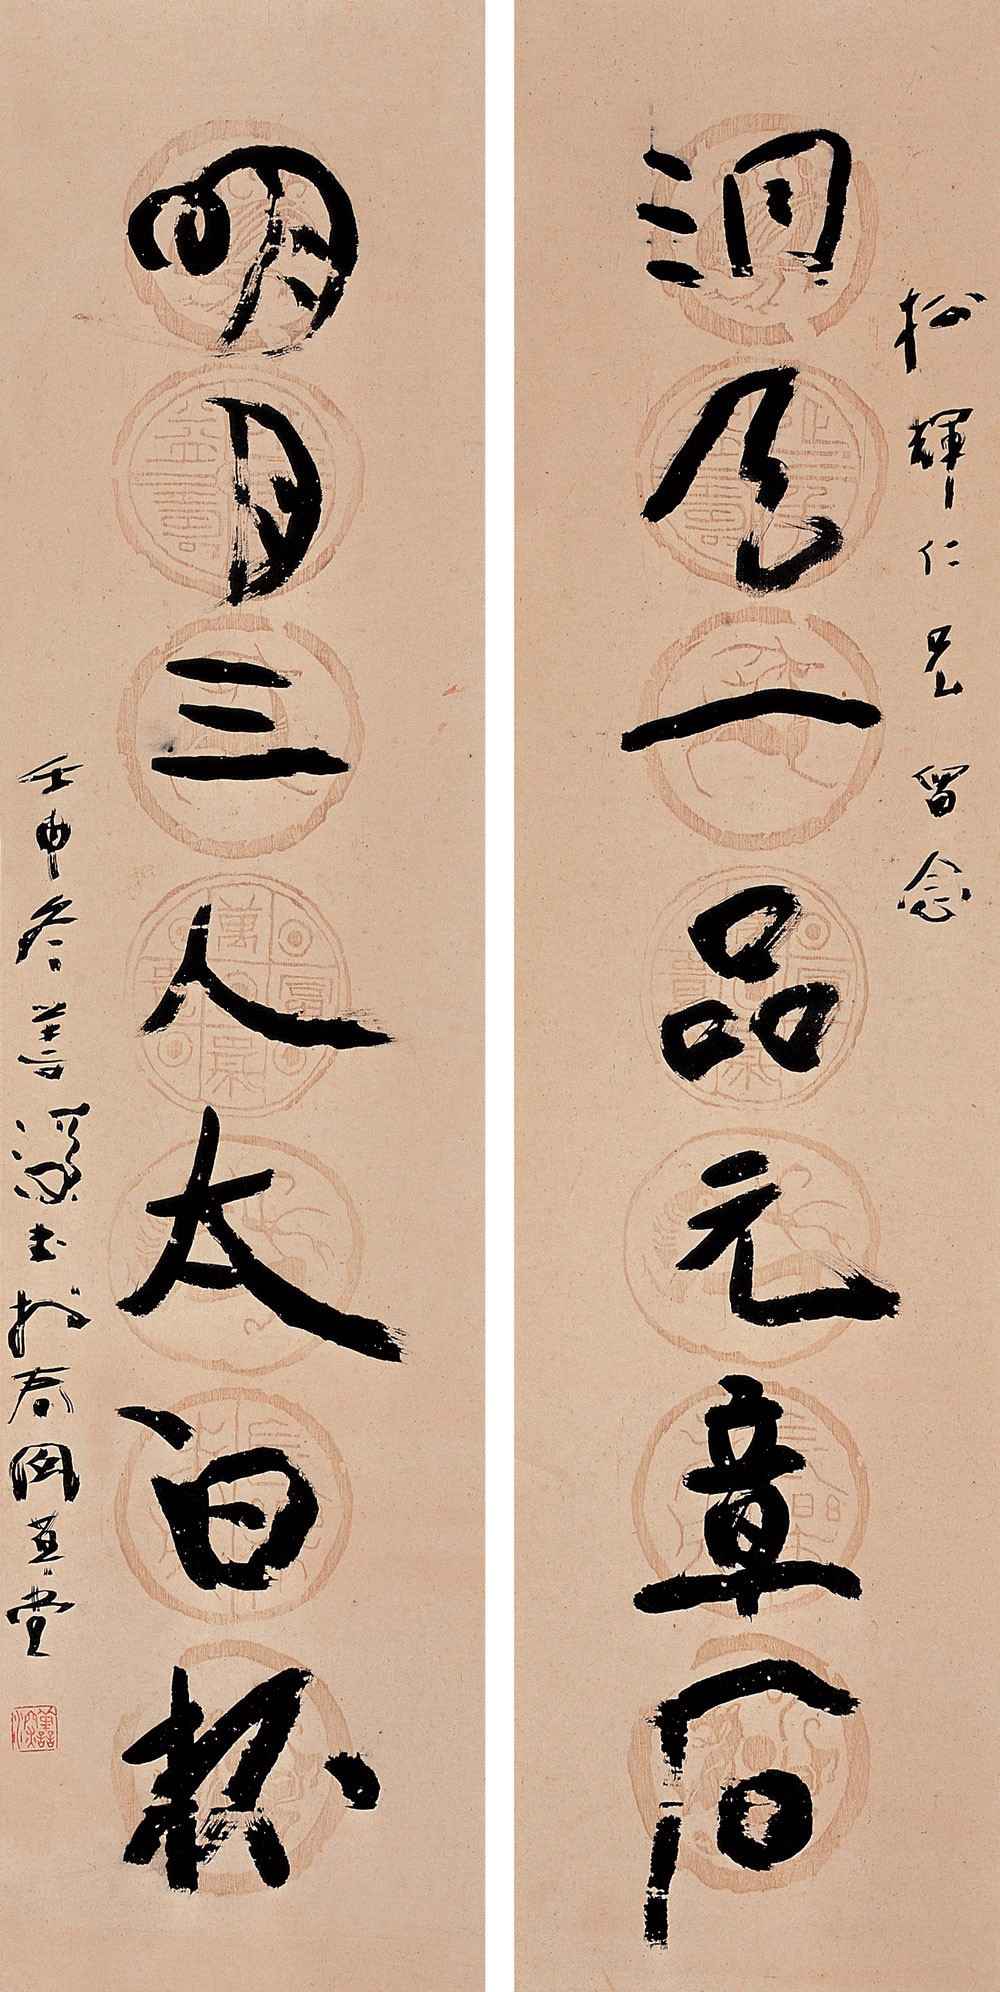 松輝仁兄留念
洞天一品元章石
明月三人太白杯
壬申冬善深書於春岡草堂
善深